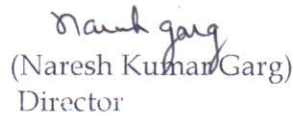 Naresh Garg
(Naresh Kumar Garg)
Director